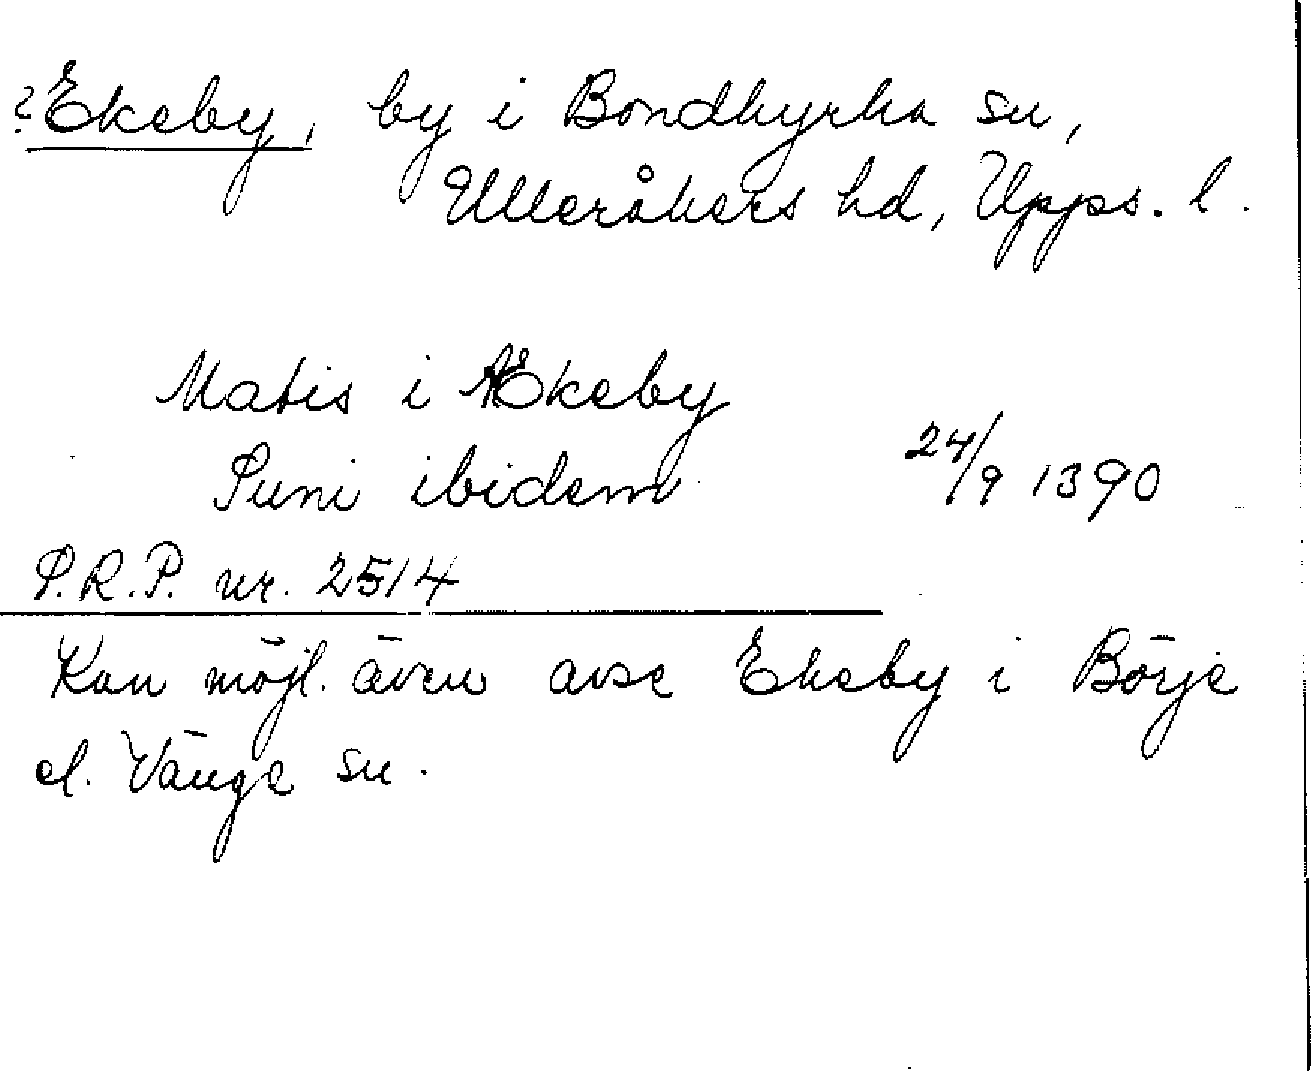 ?Ekeby, by i Bondkyrka sn,
Ulleråkers hd, Upps. l.
Matis i Ekeby
Suni ibidem 24/9 1390
S.R.P. nr. 2514
Kan möjl. även avse Ekeby i Börje
el. Vänge sn.